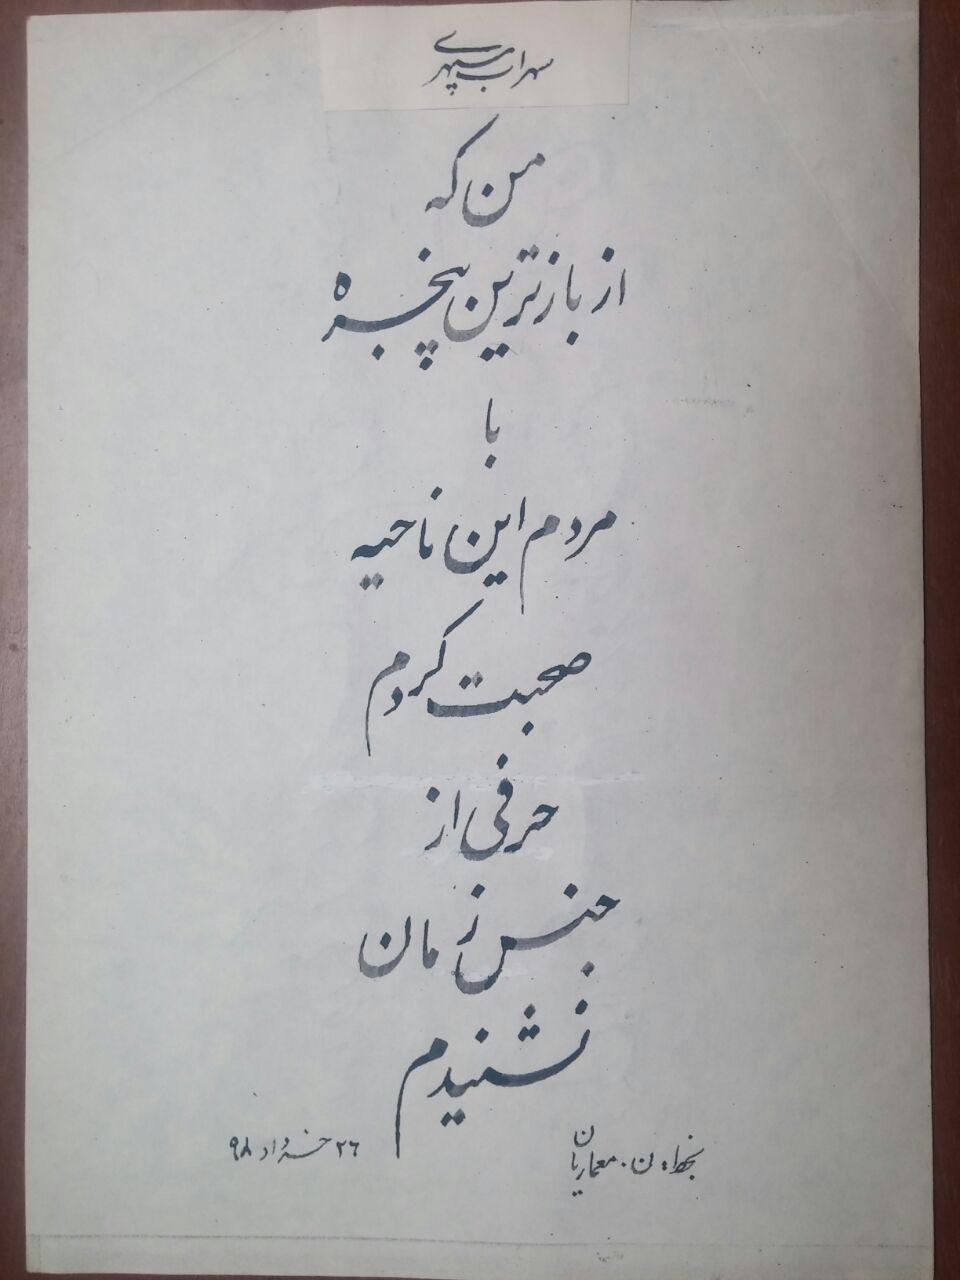 سهراب سپهری
من که
از بازترین پنجره
با
مردم این ناحیه
صحبت کردم
حرفی از
جنس زمان
نشنیدم
ن. معماریان
۲۶ خرداد ۹۸